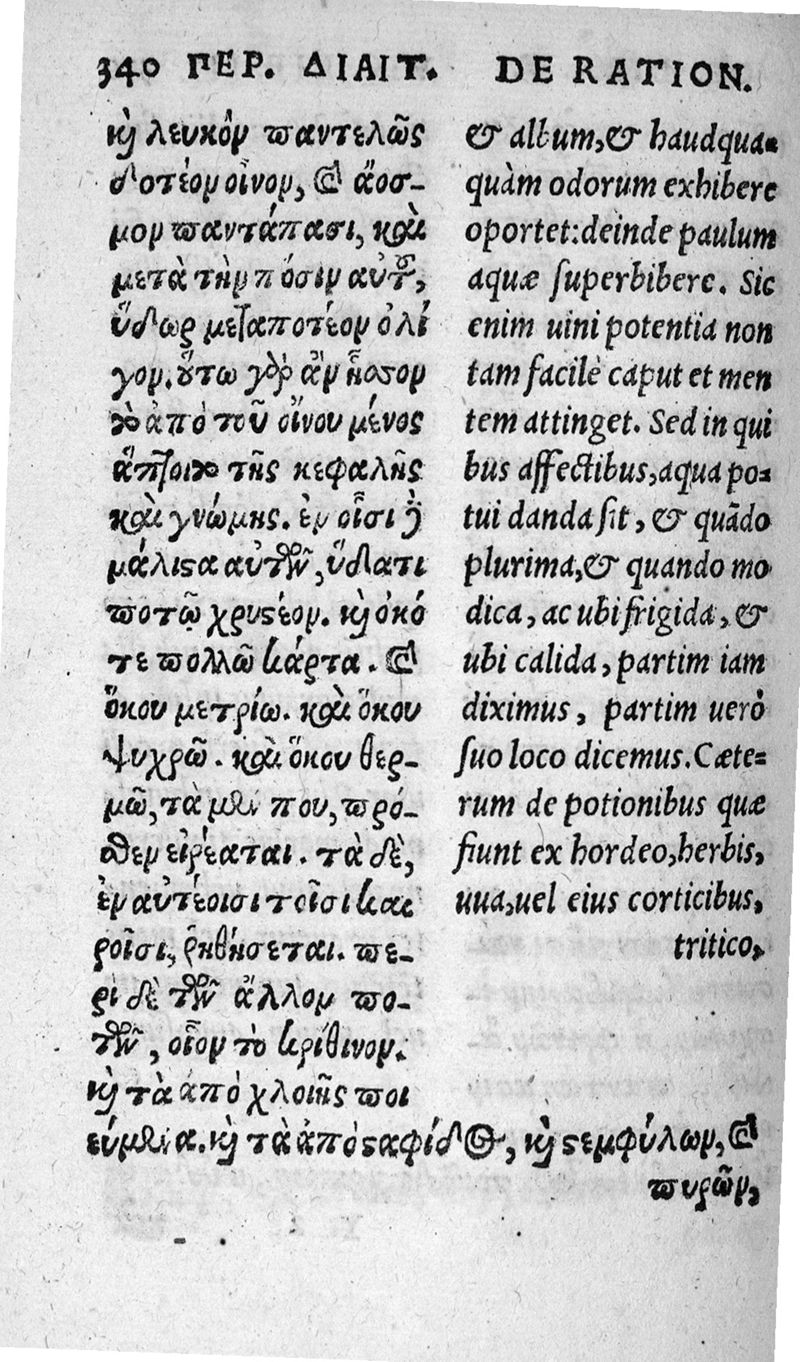 340 ΠΕΡ. ΔΙΑΙΤ. DE RATION.
κὶ λευκὸν παντελῶς
δοτέον οἶνον, καὶ ἄοσ-
μον παντάπασι, καὶ
μετὰ τὴν πόσιν αὐτοῦ,
ὕδωρ μεταποτέον ὀλί
γον. οὕτω γὰρ ἂν ἧσσον
τὸ ἀπὸ τοῦ οἴνου μένος
ἅπτοιτο τῆς κεφαλῆς
καὶ γνώμης. ἐν οἷσι δὲ
μάλιστα αὐτῶν, ὕδατι
ποτῷ χρηστέον. καὶ ὁκό
τε πολλῶ κάρτα. καὶ
ὅκου μετρίω. καὶ ὅκου
ψυχρῶ. καὶ ὅκου θερ-
μῶ, τὰ μὲν που, πρό-
σθεν εἰρέαται. τὰ δὲ,
ἐν αὐτέοισι τοῖσι και
ροῖσι, ῥηθήσεται. πε-
ρὶ δὲ τῶν ἄλλον πο-
τῶν, οἷον τὸ κρίθινον.
καὶ τὰ ἀπὸ χλοιῆς ποι
εύμενα. καὶ τὰ ἀπὸ σταφίδος, καὶ στεμφύλων, καὶ
πυρῶν,
& album, & haudqua-
quàm odorum exhibere
oportet: deinde paulum
aquæ superbibere. Sic
enim uini potentia non
tam facilè caput et men
tem attinget. Sed in qui
bus affectibus, aqua po-
tui danda sit, & quãdo
plurima, & quando mo
dica, ac ubi frigida, &
ubi calida, partim iam
diximus, partim uerò
suo loco dicemus. Cæte-
rum de potionibus quæ
fiunt ex hordeo, herbis,
uua, uel eius corticibus,
tritico,